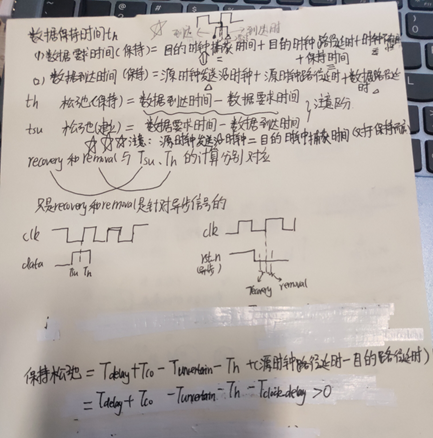 数据保持时间th
(1)数据要求时间(保持)=目的时钟捕获时间+目的时钟路径延时+时钟不确定
+保持时间
(2)数据到达时间(保持)=源时钟发送沿时间+源时钟路径延时+数据路径延时
th 松弛(保持)=数据到达时间-数据要求时间
tsu 松弛(建立)=数据要求时间-数据到达时间 } 注意区分
☆☆☆注意:源时钟发送沿时钟=目的时钟捕获时间(对于保持
recovery和removal与Tsu、Th的计算分别对应
只是recovery和removal是针对异步信号的
clk
clk
data
rst_n
Tsu Th
recovery removal
保持松弛=Tdelay+Tco-Tuncertain-Th+(源时钟路径延时-目的路径延时)
=Tdelay+Tco-Tuncertain-Th-Tclock delay>0